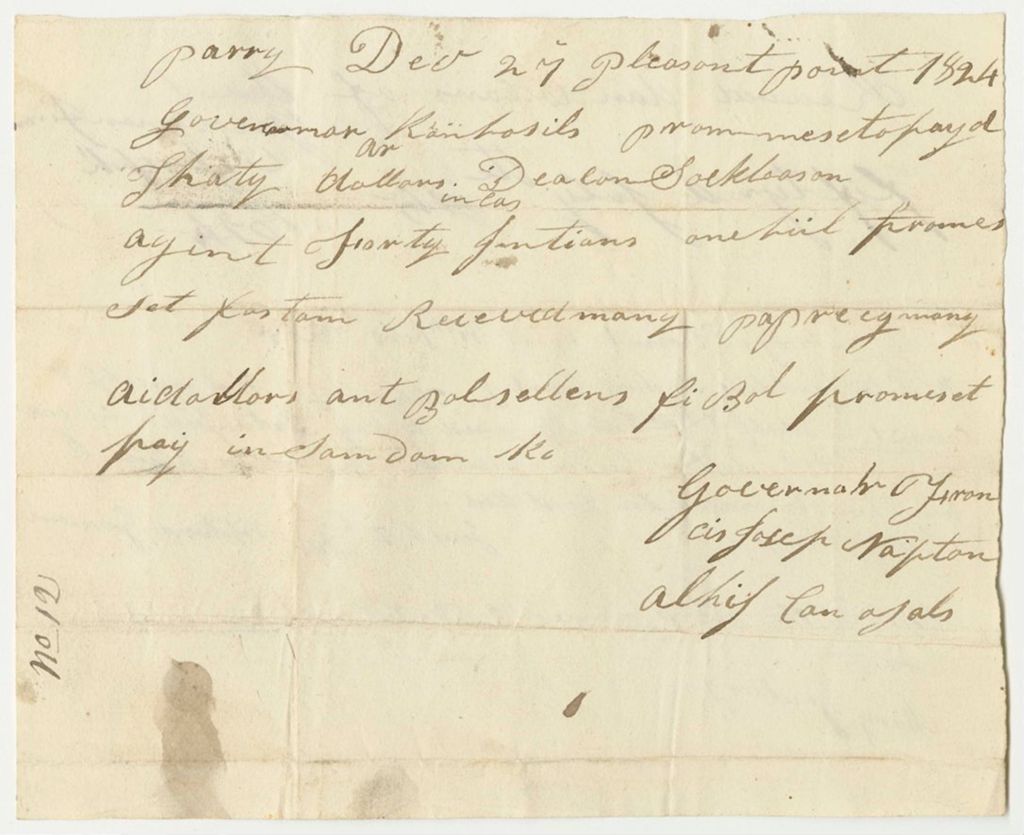 parry Decr 27 pleasont point 1824
Governmar Konhosils prommesetopayd
Thaty dollars Deacon Sockbason
ar
in cas
agint Forty fintians one hiil promes
set fastam Recevedmany paprecymany
aidollors ant Bolsellens fi Bol promeset
pay in Samdam Ko
Governahr Fran
cis Josep Naipton
alhis Can osals
No 12